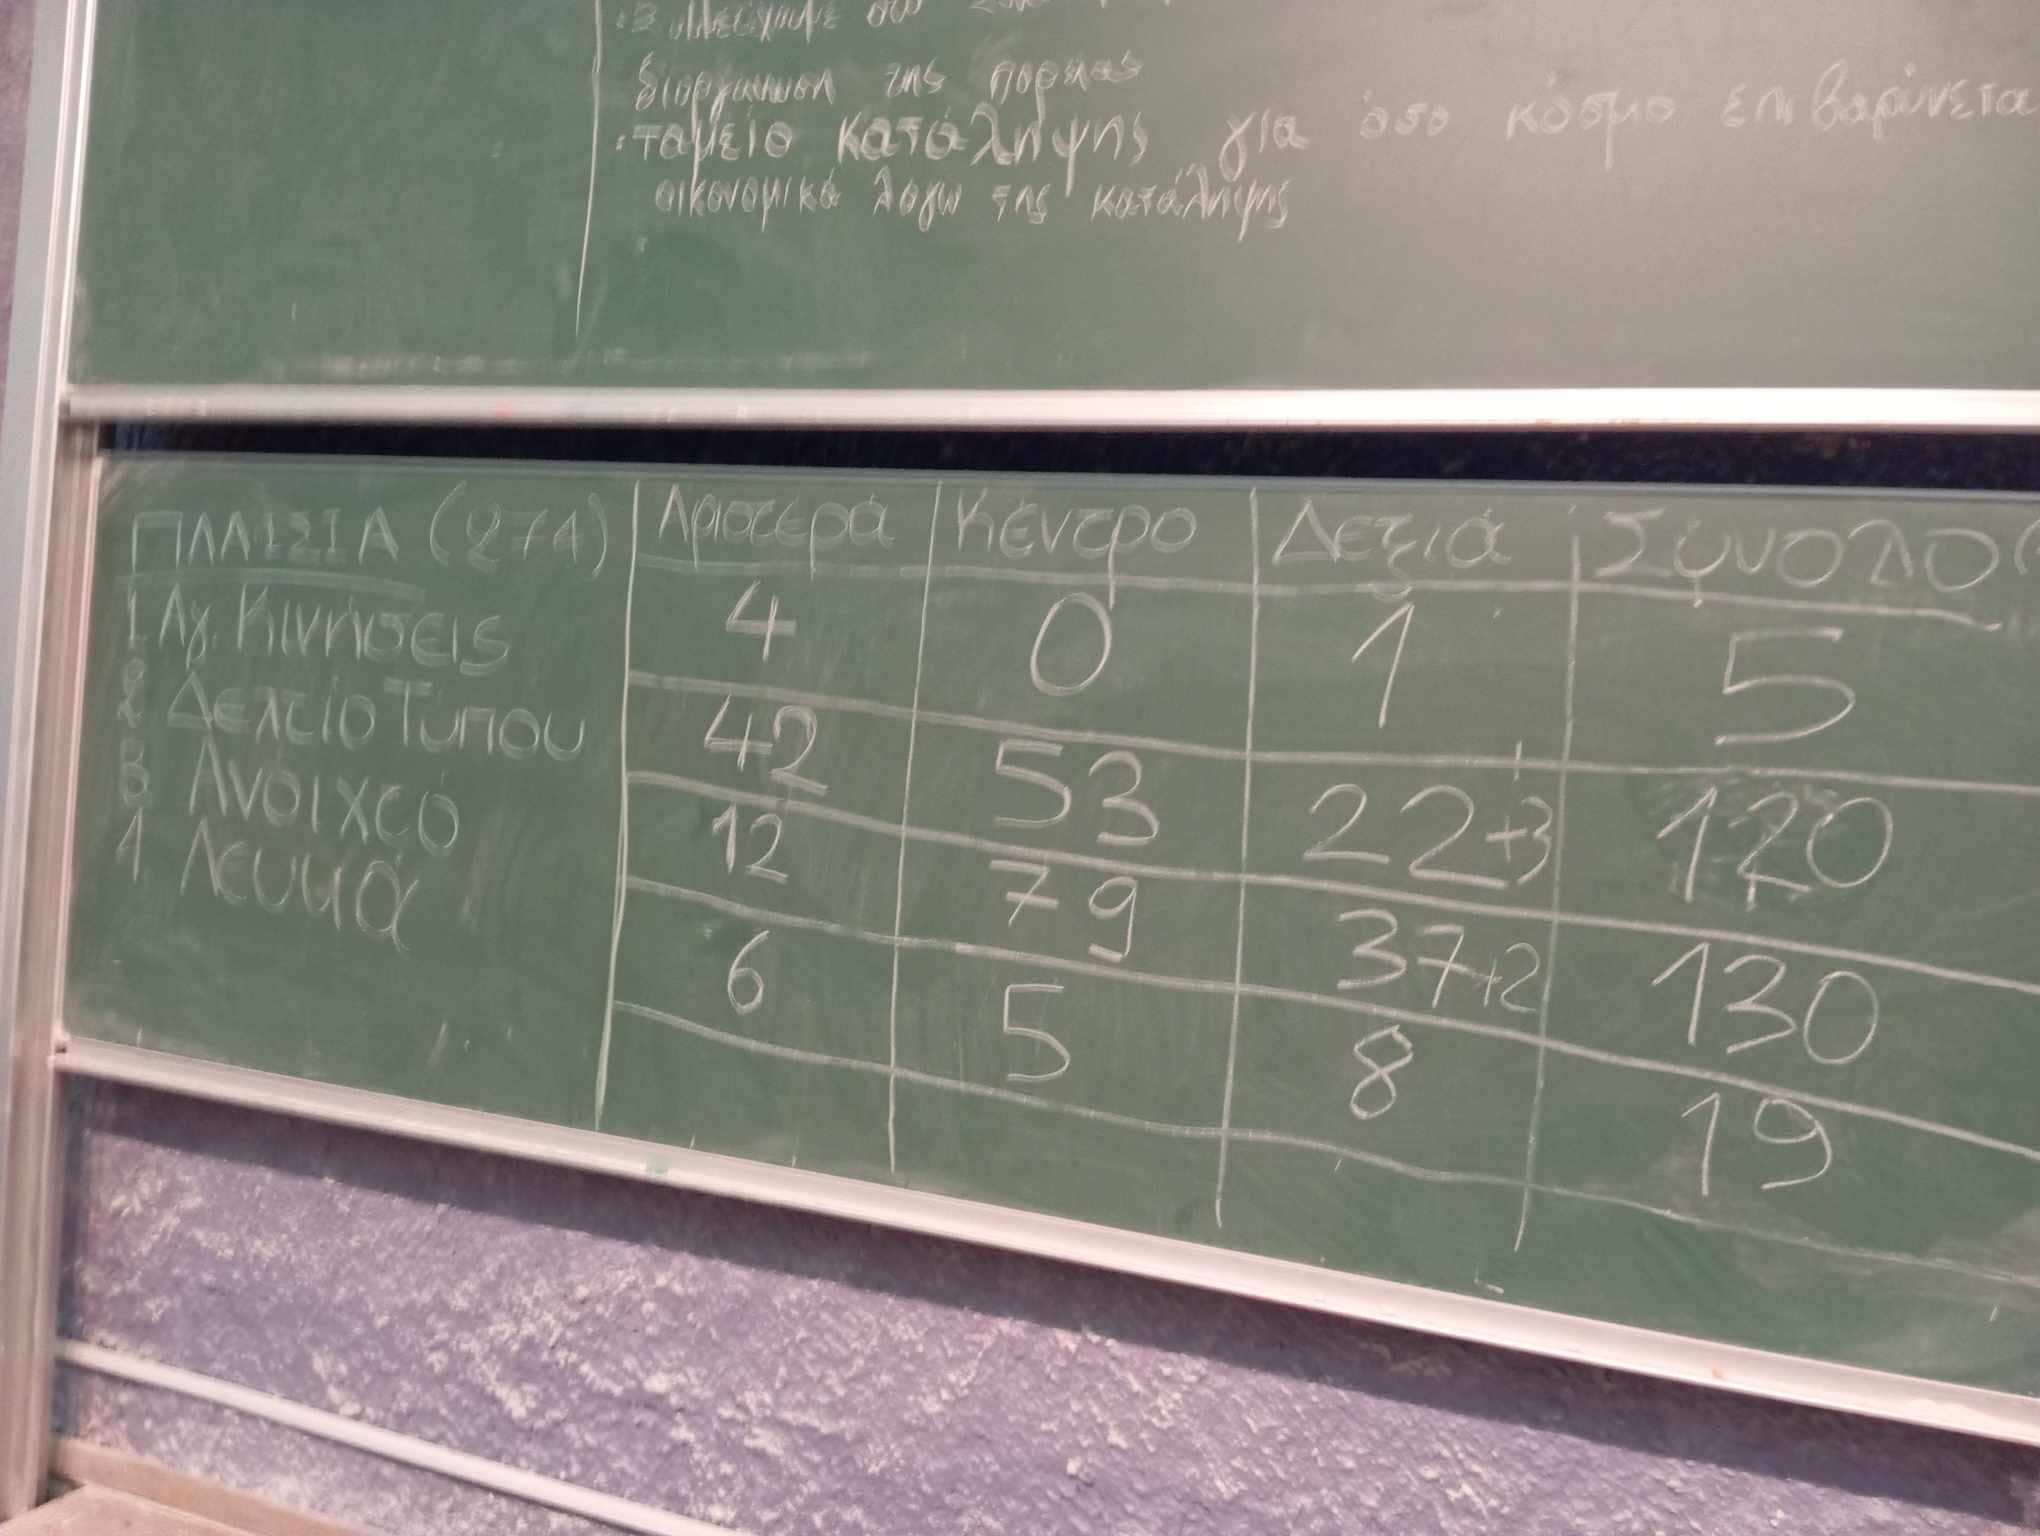 διοργάνωση της πορείας
·ταμείο κατάληψης για όσο κόσμο επιβαρύνεται
οικονομικά λόγω της κατάληψης
ΠΛΑΙΣΙΑ (274) Αριστερά Κέντρο Δεξιά Σύνολο(
1. Αγ. Κινήσεις 4 0 1 5
2 Δελτίο Τύπου 42 53 22+3 120
3 Ανοιχτό 12 79 37+2 130
4 Λευκά 6 5 8 19